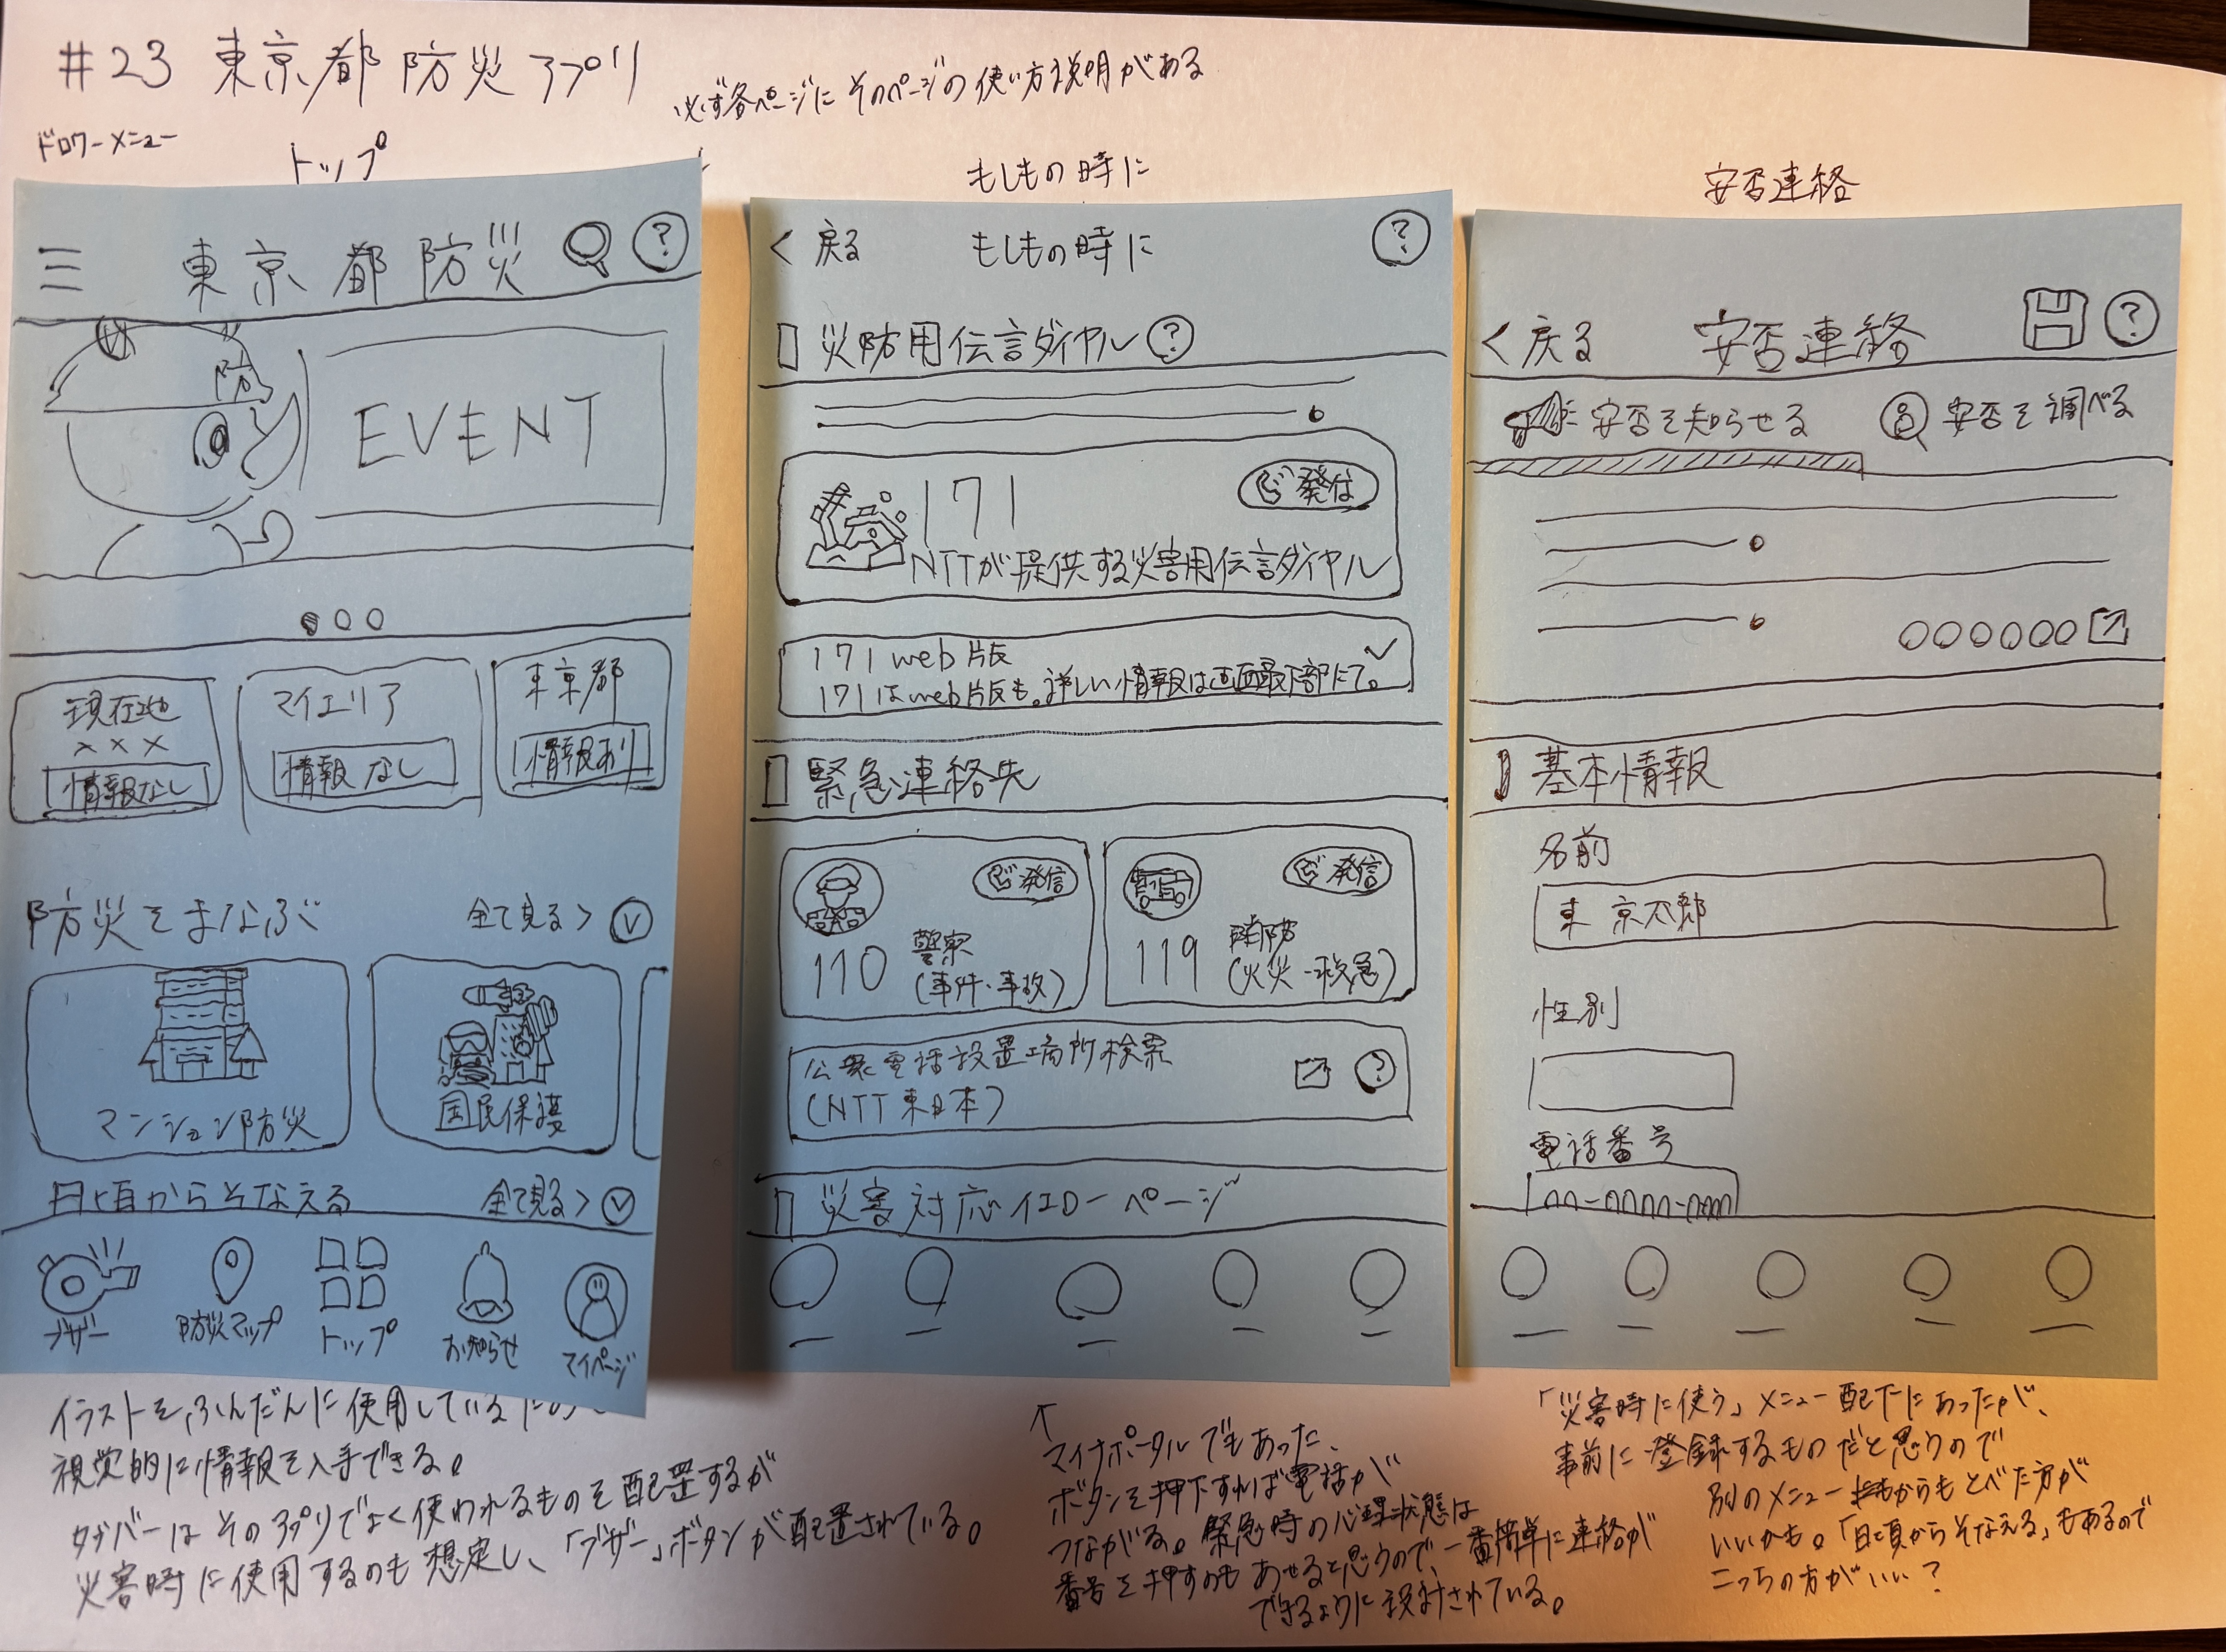 #23 東京都防災アプリ
必ず各ページにそのページの使い方説明がある
ドロワーメニュー
トップ
もしもの時に
安否連絡
東京都防災 ?
防
EVENT
現在地
×××
情報なし
マイエリア
情報なし
東京都
情報あり
防災をまなぶ 全て見る >
マンション防災
国民保護
日頃からそなえる 全て見る >
ブザー
防災マップ
トップ
お知らせ
マイページ
< 戻る もしもの時に ?
災防用伝言ダイヤル ?
171 発信
NTTが提供する災害用伝言ダイヤル
171 web版
171はweb版も。詳しい情報は画面最下部にて。
緊急連絡先
発信
110 警察
(事件・事故)
発信
119 消防
(火災・救急)
公衆電話設置場所検索
(NTT東日本) ?
災害対応イエローページ
< 戻る 安否連絡 ?
安否を知らせる 安否を調べる
○○○○○○
基本情報
名前
東 京太郎
性別
電話番号
イラストをふんだんに使用している
視覚的に情報を入手できる。
タブバーはそのアプリでよく使われるものを配置するが
災害時に使用するのも想定し、「ブザー」ボタンが配置されている。
↑
マイナポータルでもあった、
ボタンを押下すれば電話が
つながる。緊急時の心理状態は
番号を押すのもあせると思うので、一番簡単に連絡が
できるように設計されている。
「災害時に使う」メニュー配下にあったが、
事前に登録するものだと思うので
別のメニューからもとべた方が
いいかも。「日頃からそなえる」もあるので
こっちの方がいい?